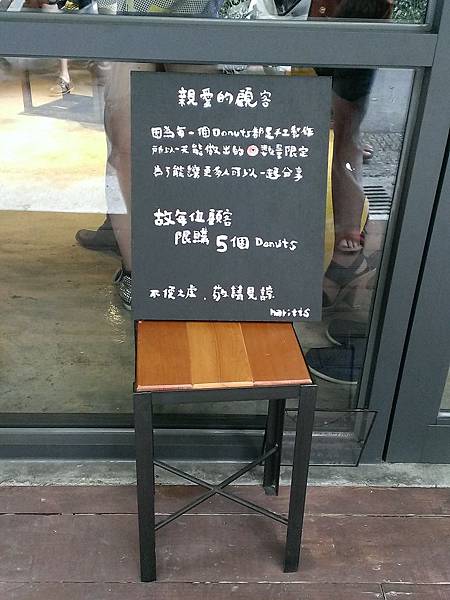 親愛的顧客
因為每一個Donuts都是手工製作
所以一天能做出的數量限定
為了能讓更多人可以一起分享
故每位顧客
限購5個Donuts
不便之處、敬請見諒
haritts